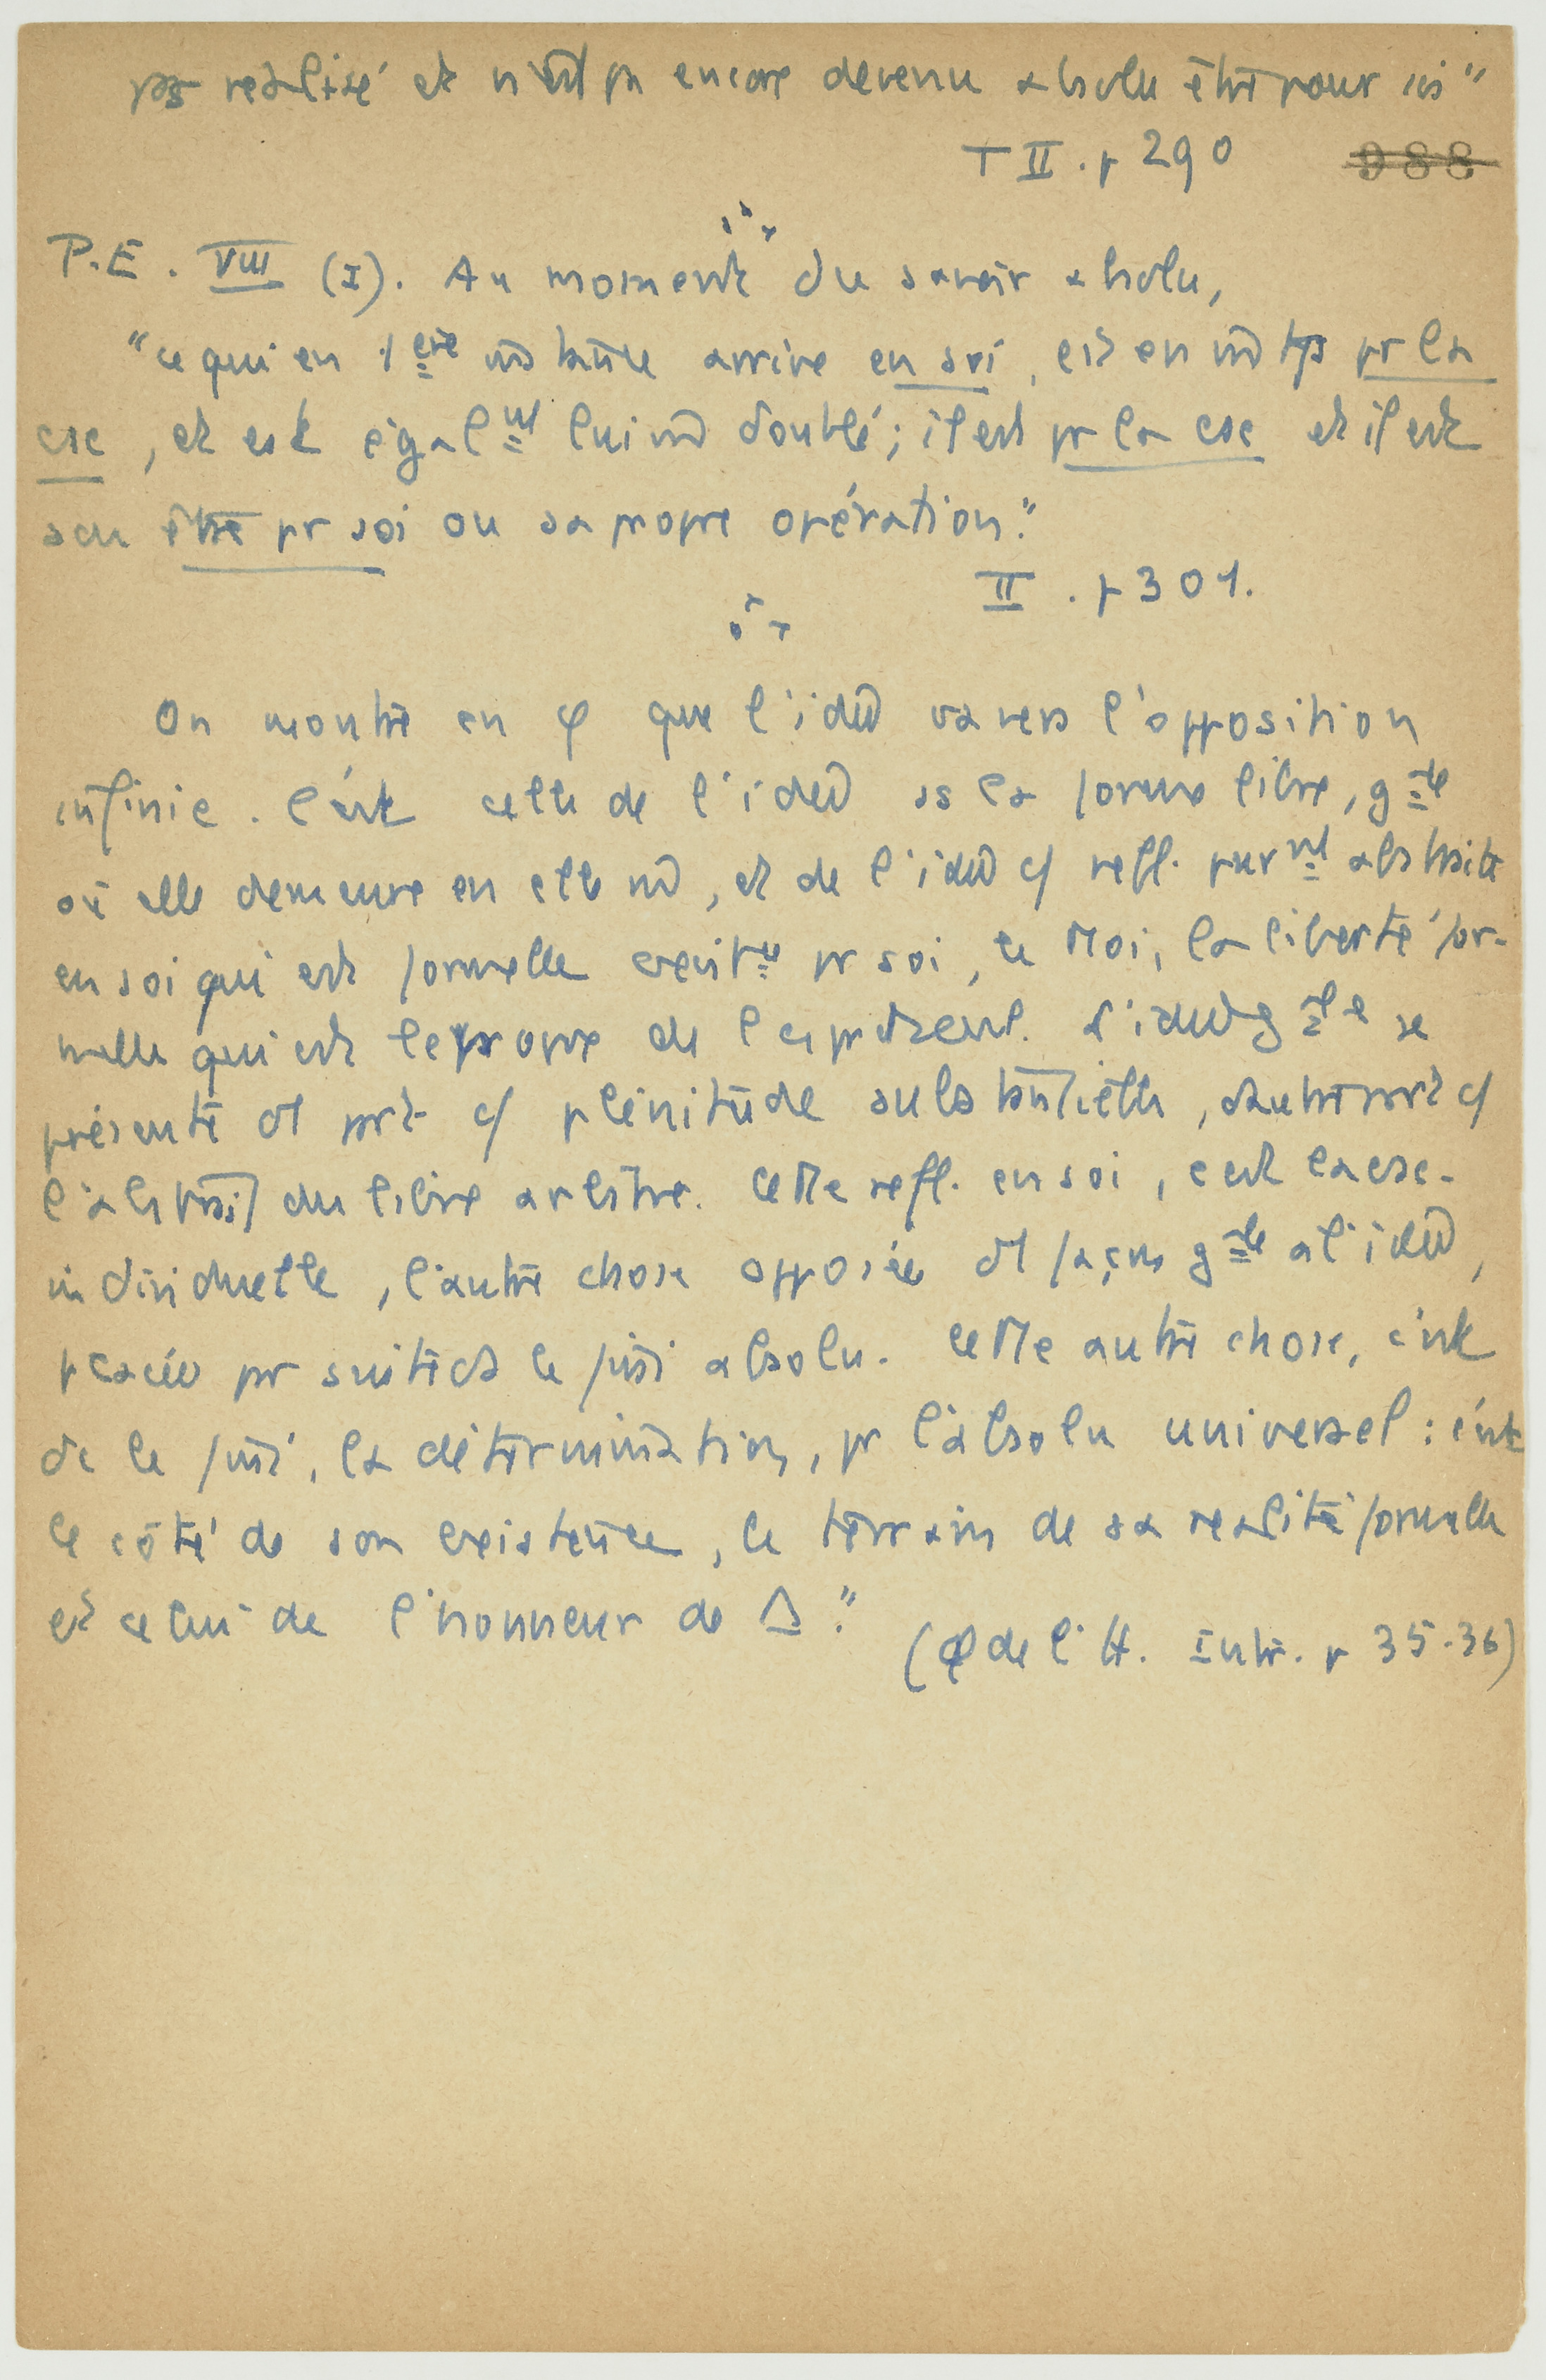 pas realisé et n'est pas encore devenu absolu être pour soi"
T II . p 290 988
P.E. VIII (I). Au moment du savoir absolu,
"ce qui en 1ere instance arrive en soi, est en m tps pr la
csc, et est égalmt lui m doublé; il est pr la csc et il est
son être pr soi ou sa propre opération."
II . p 301.
On montre en φ que l'idée va vers l'opposition
infinie. C'est celle de l'idée ss la forme libre, gale
où elle demeure en elle m, et de l'idée c/ refl. purmt abstraite
en soi qui est formelle pr soi, le Moi, la liberté for-
melle qui est le propre de l'esprit seul. L'idée gale se
présente d'1 part c/ plénitude substantielle, d'autre part c/
l'abstrait du libre arbitre. Cette refl. en soi, c'est la csc.
individuelle, l'autre chose opposée d'1 façon gale a l'idée,
placée pr suite ds le fini absolu. Cette autre chose, c'est
dc le fini, la détermination, pr l'absolu universel : c'est
le côté de son existence, le terrain de sa realité formelle
et celui de l'honneur de Δ."
(φ de l'H. Intr. p 35-36)